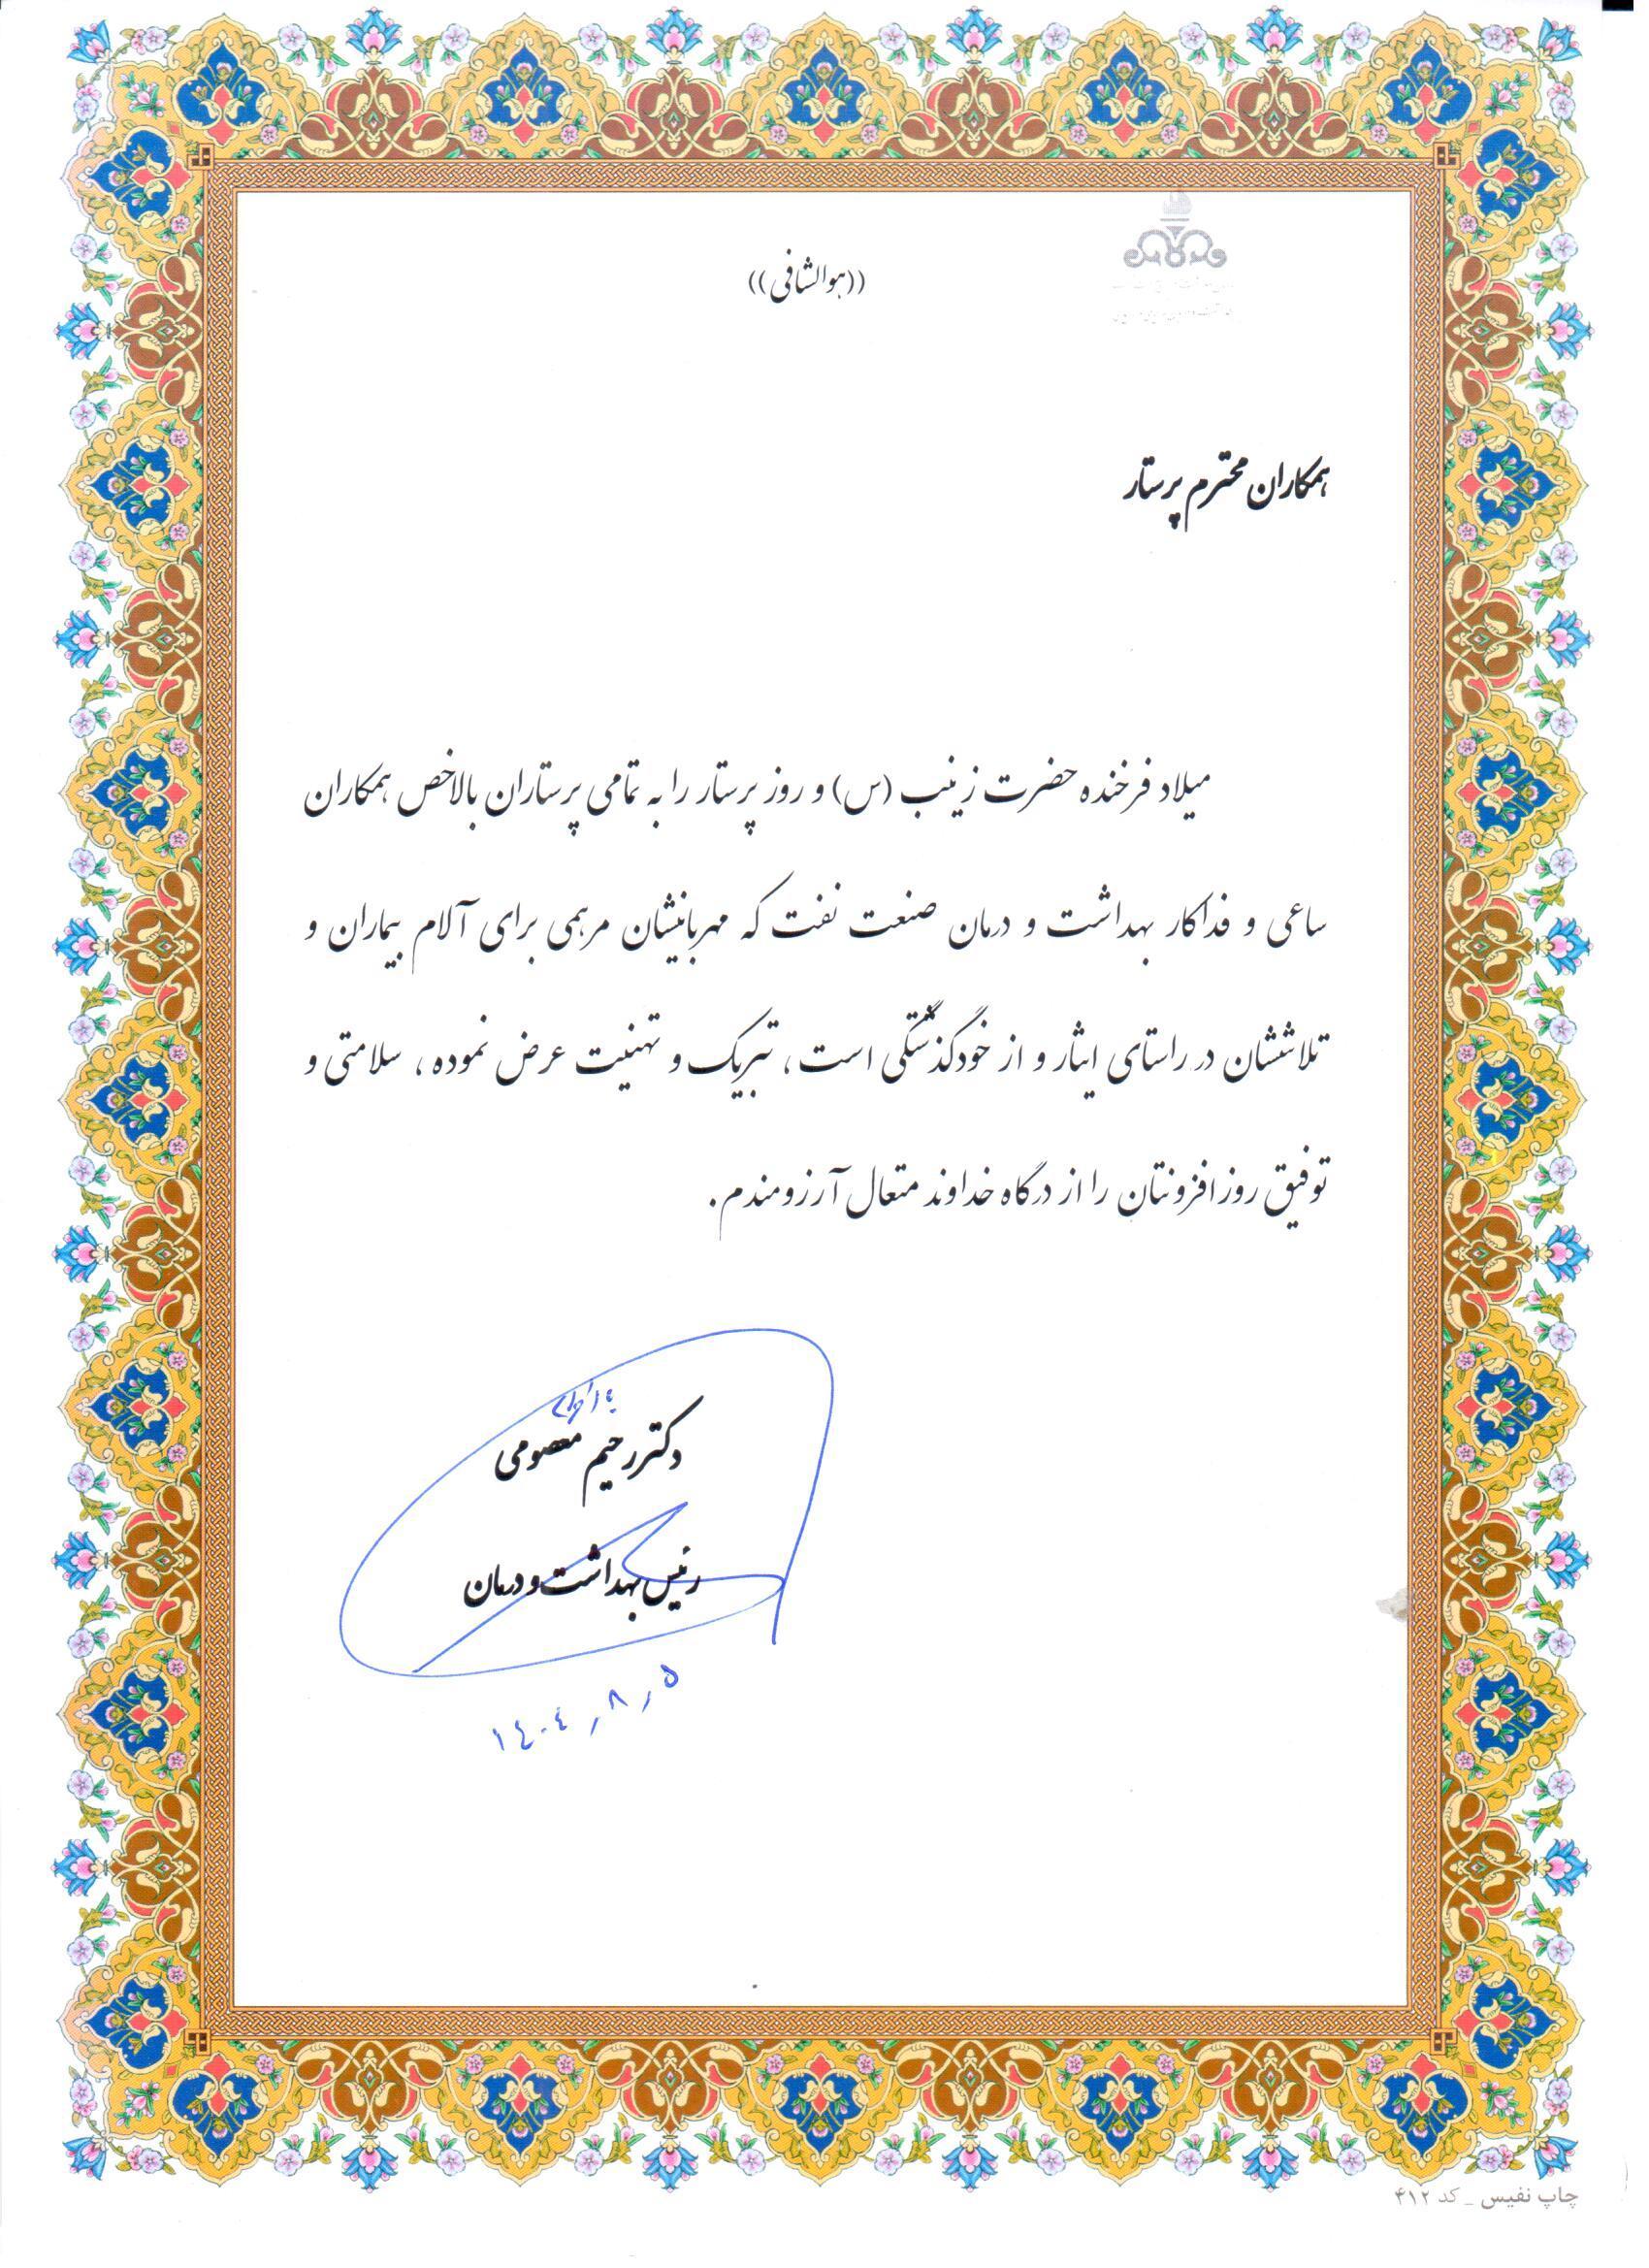 ((هوالشافی))
همکاران محترم پرستار
میلاد فرخنده حضرت زینب (س) و روز پرستار را به تمامی پرستاران بالاخص همکاران
ساعی و فداکار بهداشت و درمان صنعت نفت که مهربانیشان مرهمی برای آلام بیماران و
تلاششان در راستای ایثار و از خودگذشتگی است، تبریک و تهنیت عرض نموده، سلامتی و
توفیق روزافزونتان را از درگاه خداوند متعال آرزومندم.
دکتر رحیم معصومی
رئیس بهداشت و درمان
۱۴۰۴٫۸٫۵
چاپ نفیس _ کد ۴۱۲